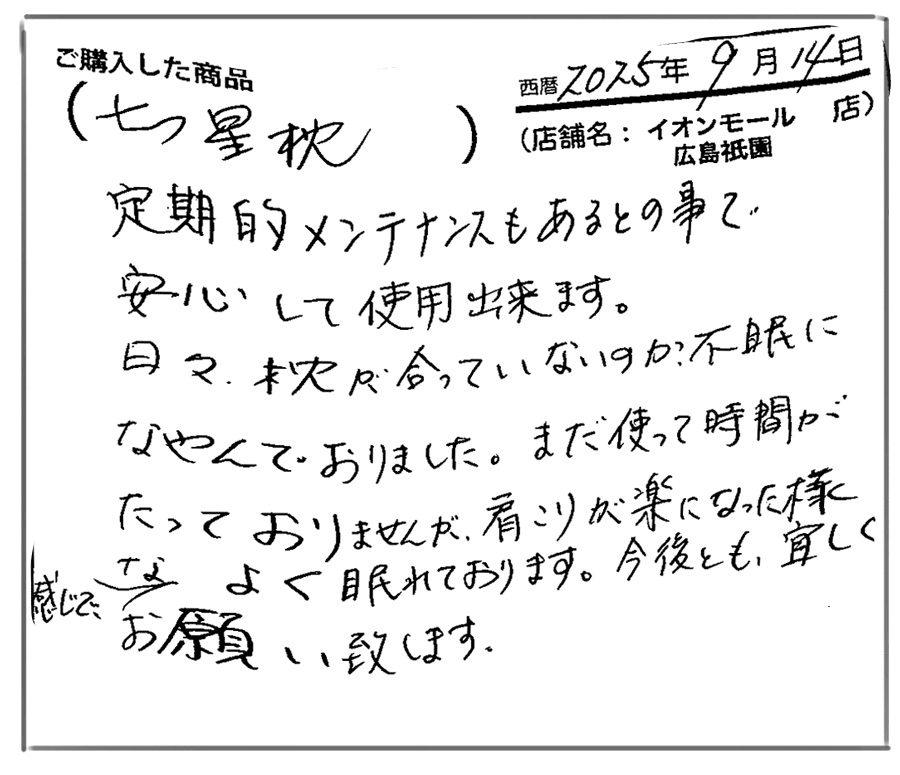 ご購入した商品
西暦 2025年 9月 14日
(七つ星枕)
(店舗名：イオンモール 広島祇園 店)
定期的メンテナンスもあるとの事で
安心して使用出来ます。
日々、枕が合っていないのか?不眠に
なやんでおりました。まだ使って時間が
たっておりませんが、肩こりが楽になった様
な感じで、よく眠れております。今後とも、宜しく
お願い致します。